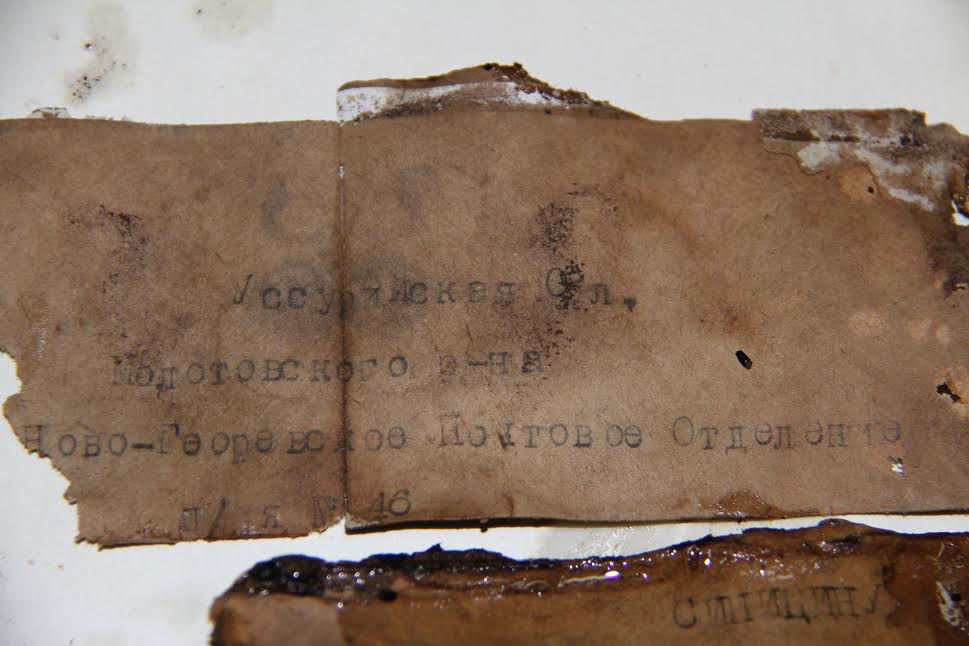 Уссурийская Обл,
Молотовского р-на
Ново-Георевское Почтовое Отделение
п/ я № 16
СИНИЦИНУ